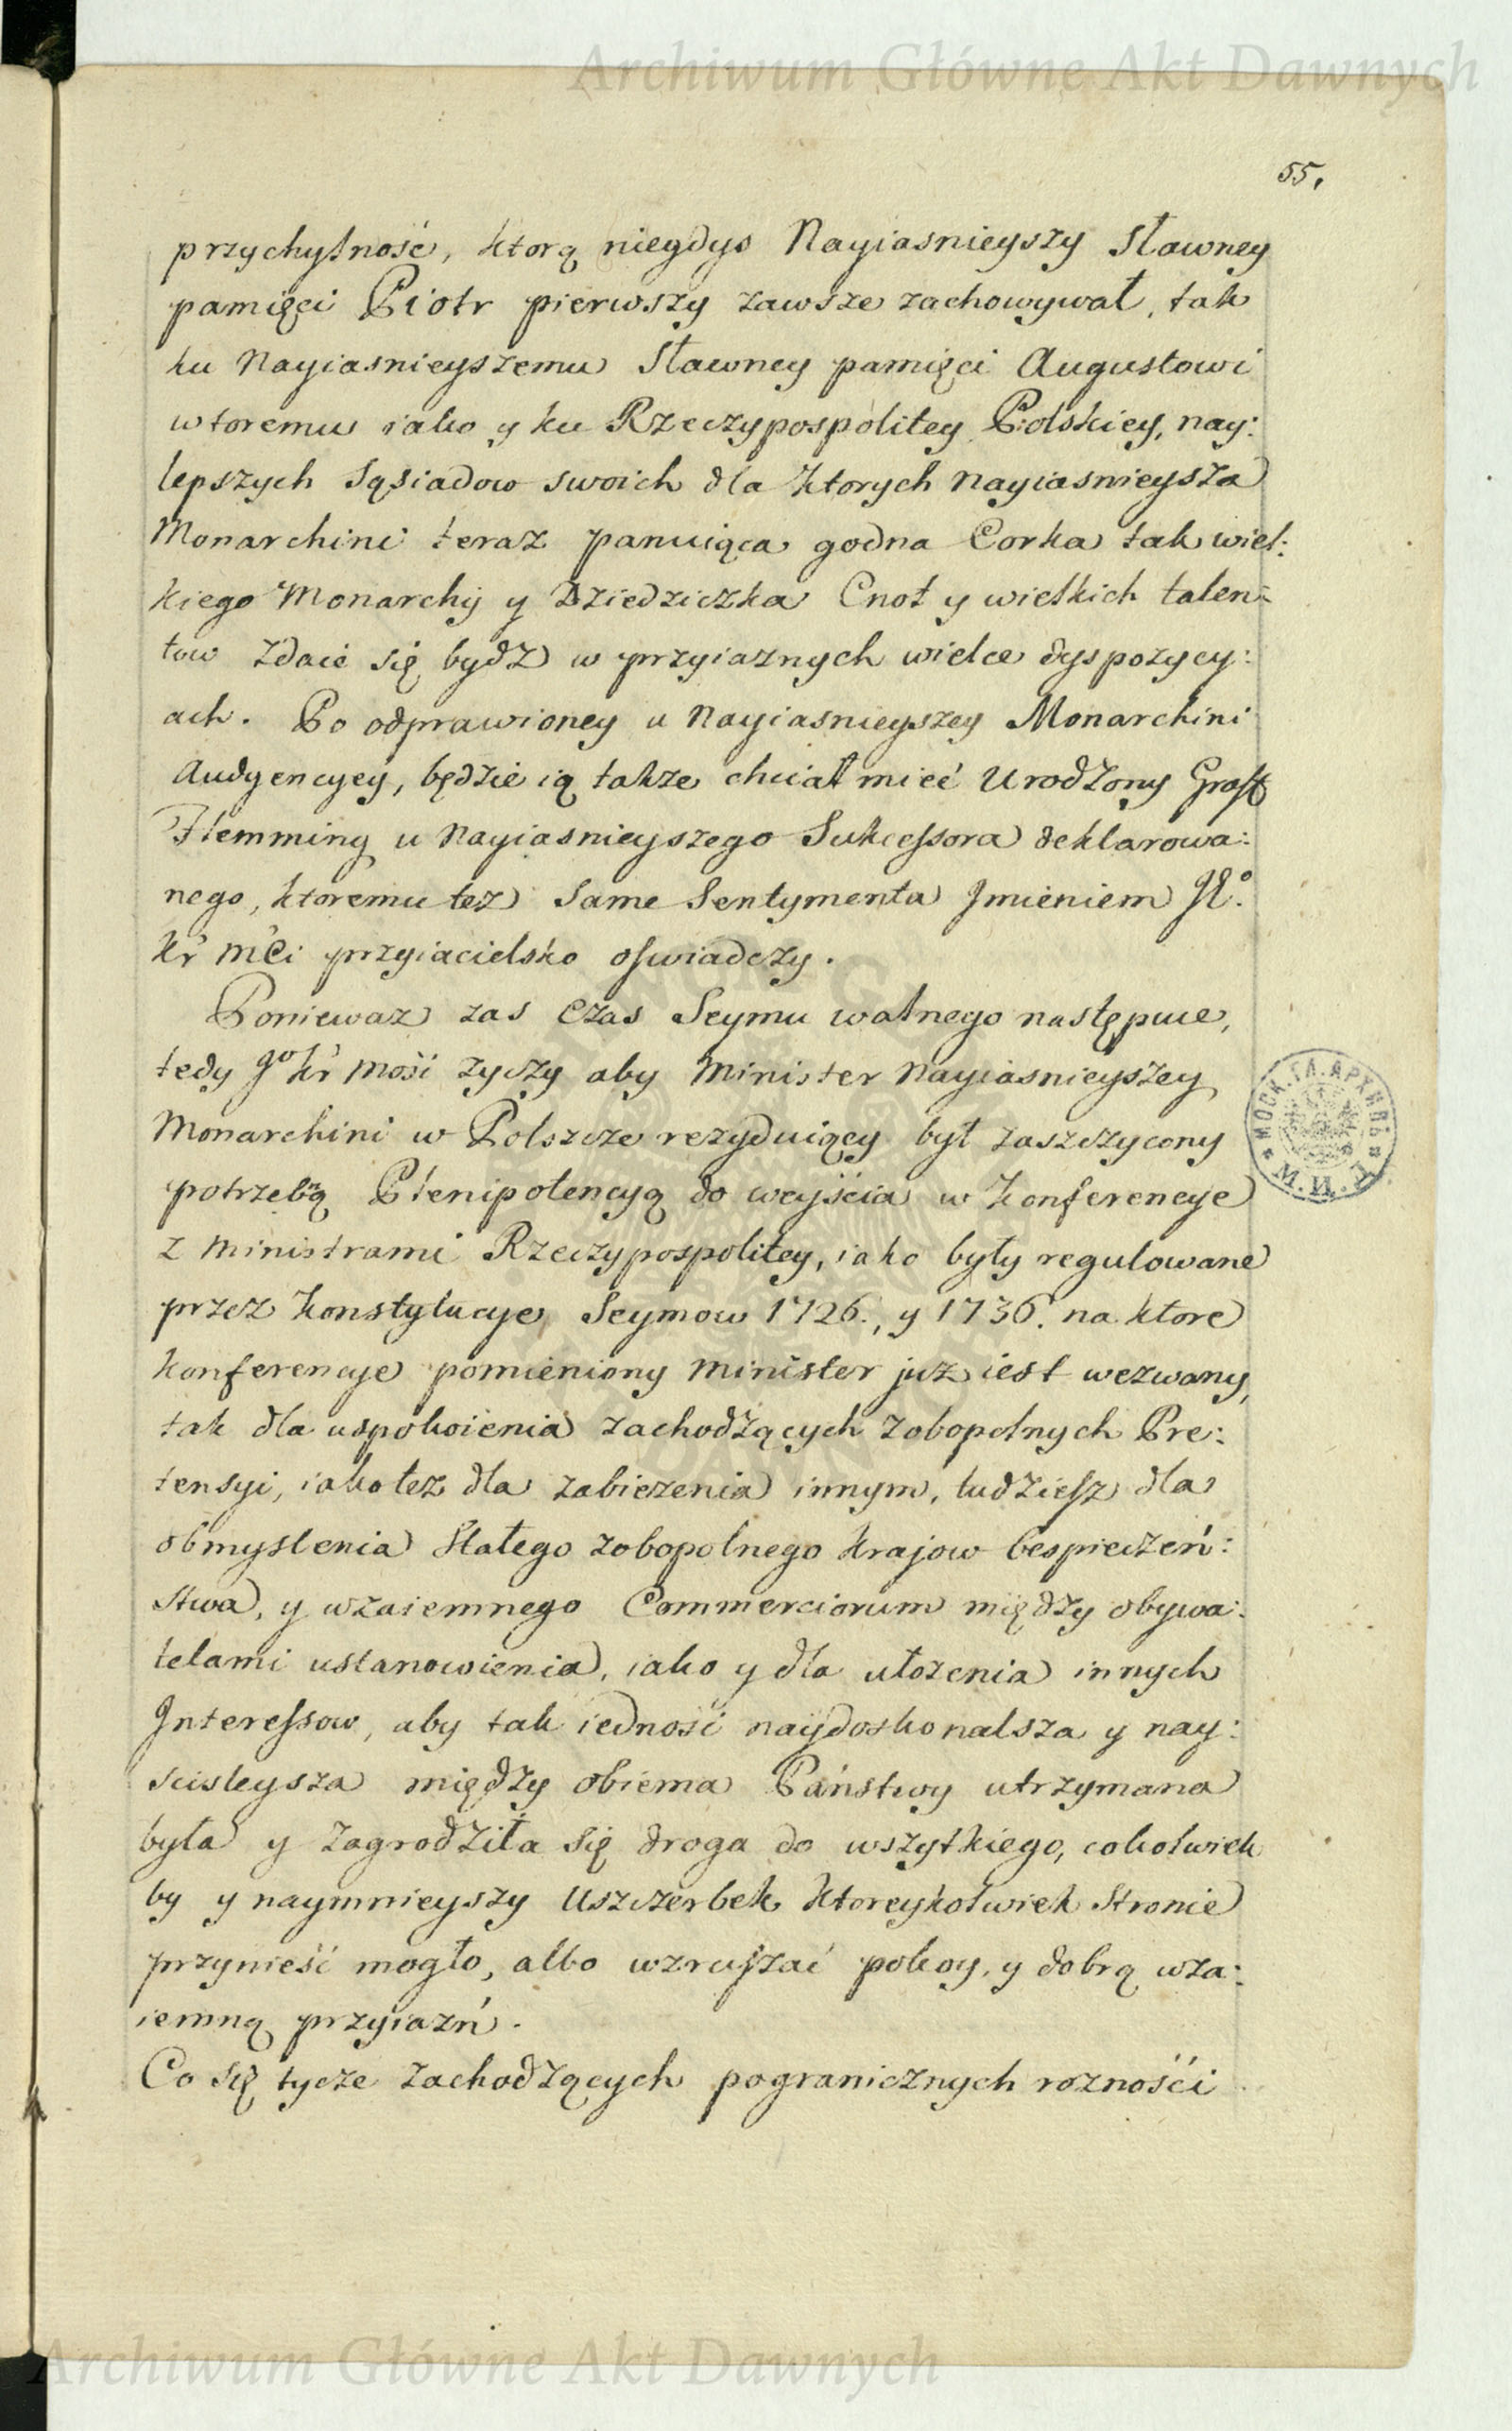 Archiwum Główne Akt Dawnych
55.
przychylność, ktorą niegdys Nayiasnieyszy Sławney
pamięci Piotr pierwszy zawsze zachowywał, tak
ku Nayiasnieyszemu Sławney pamięci Augustowi
wtoremu iako y ku Rzeczypospolitey Polskiey, nay:
lepszych Sąsiadow swoich dla ktorych Nayiasnieysza
Monarchini teraz panuiąca godna Corka tak wiel:
kiego Monarchij y Dziedziczka Cnot y wielkich talen:
tow zdaie się bydz w przyiaznych wielce dyspozycy:
ach. Po odprawioney u Nayiasnieyszey Monarchini
Audyencyey, będzie ią takze chciał mieć Urodzony Graff
Flemming u Nayiasnieyszego Sukcessora deklarowa:
nego, ktoremu tez Same Sentymenta Jmieniem JKo.
Kr mći przyiacielsko oswiadczy.
Poniewaz zas Czas Seymu walnego następuie,
tedy Jo Kr Mość zyczy aby Minister Nayiasnieyszey
Monarchini w Polszcze rezyduiący był zaszczycony
potrzebną Plenipotencyą do weyścia w Konferencye
z Ministrami Rzeczypospolitey, iako były regulowane
przez Konstytucye Seymow 1726., y 1736. na ktore
Konferencye pomieniony Minister juz iest wezwany,
tak dla uspokoienia zachodzących zobopolnych Pre:
tensyi, iako tez dla zabiezenia innym, tudziesz dla
obmyslenia Stałego zobopolnego Krajow bespieczeń:
stwa, y wzaiemnego Commerciorum między obywa:
telami ustanowienia, iako y dla ułozenia innych
Interessow, aby tak iedność naydoskonalsza y nay:
scisleysza między obiema Państwy utrzymana
była y zagrodziła się droga do wszytkiego, cokolwiek
by y naymnieyszy Uszczerbek ktoreykolwiek Stronie
przynieść mogło, albo wzruszać pokoy, y dobrą wza:
iemną przyiazń.
Co się tycze zachodzących pogranicznych roznośći
МОСК. ГЛ. АРХИВЪ М. И. Д.
Archiwum Główne Akt Dawnych